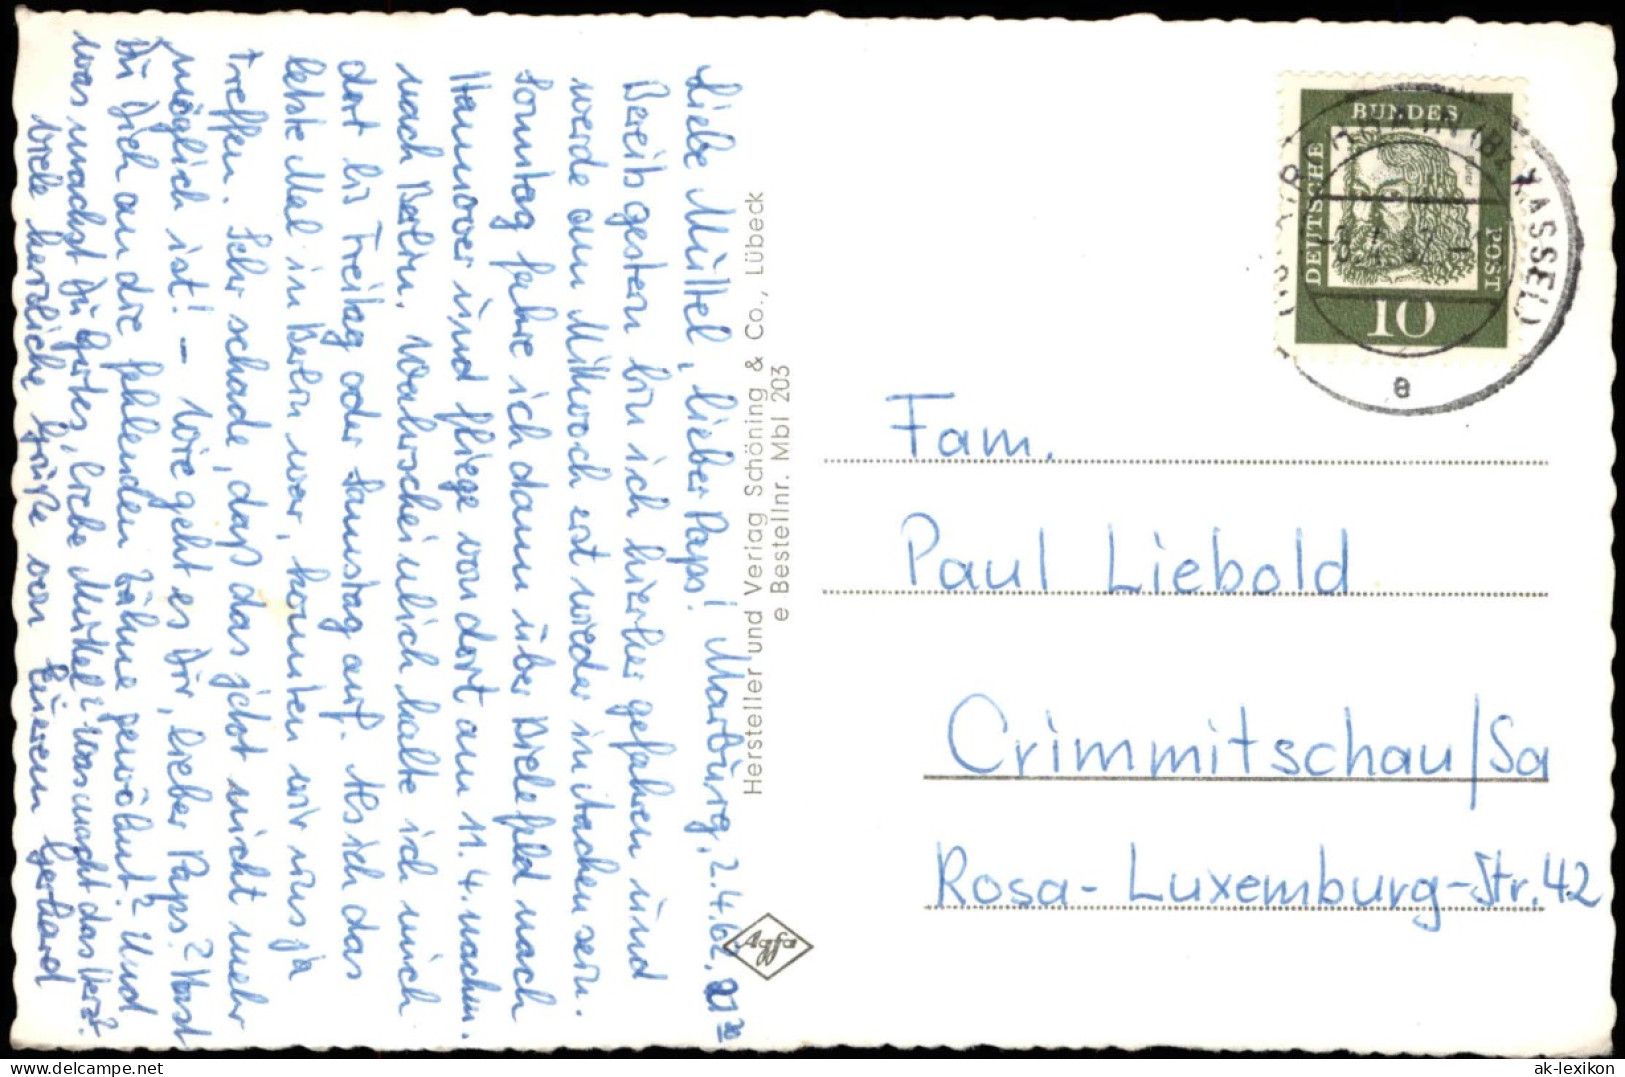 Marburg, 2.4.62. 21 30
Liebe Muttel, lieber Paps!
Bereits gestern bin ich hierher gefahren und
werde am Mittwoch erst wieder in Aachen sein.
Sonntag fahre ich dann über Bielefeld nach
Hannover und fliege von dort am 11.4. nachm.
nach Berlin. Wahrscheinlich halte ich mich
dort bis Freitag oder Samstag auf. Als ich das
letzte Mal in Berlin war, konnten wir uns ja
treffen. Sehr schade, daß das jetzt nicht mehr
möglich ist! – Wie geht es Dir, lieber Paps? Hast
Du Dich an die fehlenden Zähne gewöhnt? Und
was machst Du Gutes, liebe Muttel? Was macht das Herz?
Viele herzliche Grüße von Eurem Gerhard
Hersteller und Verlag Schöning & Co., Lübeck
e Bestellnr. Mbl 203
Agfa
DEUTSCHE
BUNDES
POST
10
KASSEL)
a
Fam.
Paul Liebold
Crimmitschau/Sa
Rosa-Luxemburg-Str. 42
© ak-ansichtskarten.de
ak-lexikon